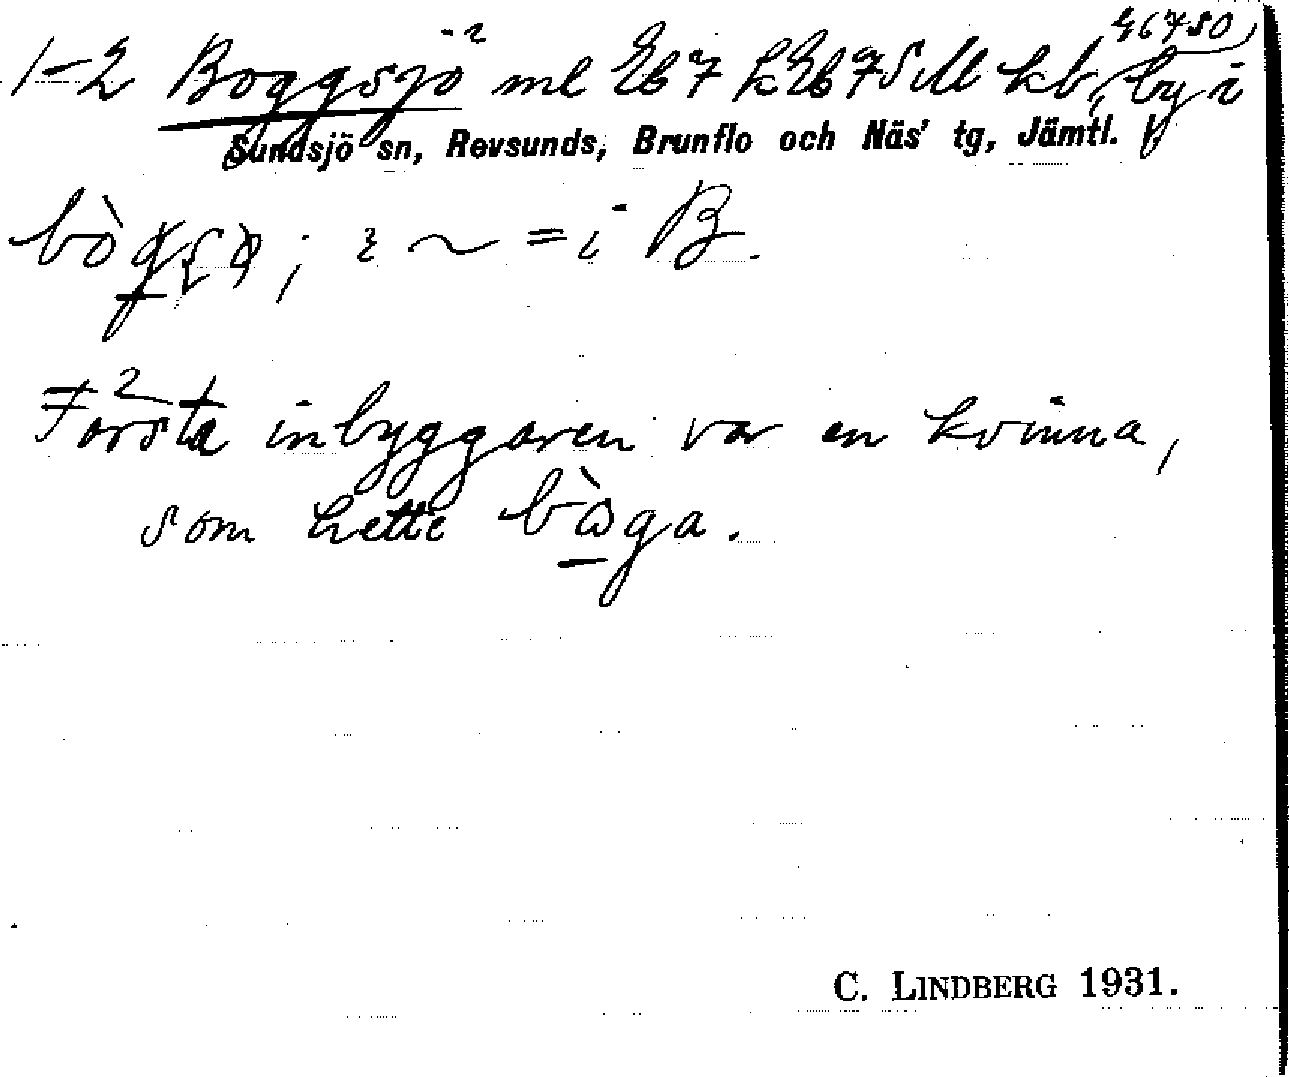 46750
1-2 Boggsjö ml Eb7 kEb7SM kb, by i
Sundsjö sn, Revsunds, Brunflo och Näs' tg, Jämtl.
; ~ = i B.
Första inbyggaren var en kvinna,
som hette bòga.
C. LINDBERG 1931.